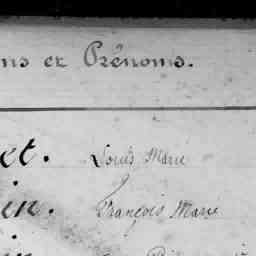 ns et Prénoms.
et. Louis Marie
in. François Marie
in.